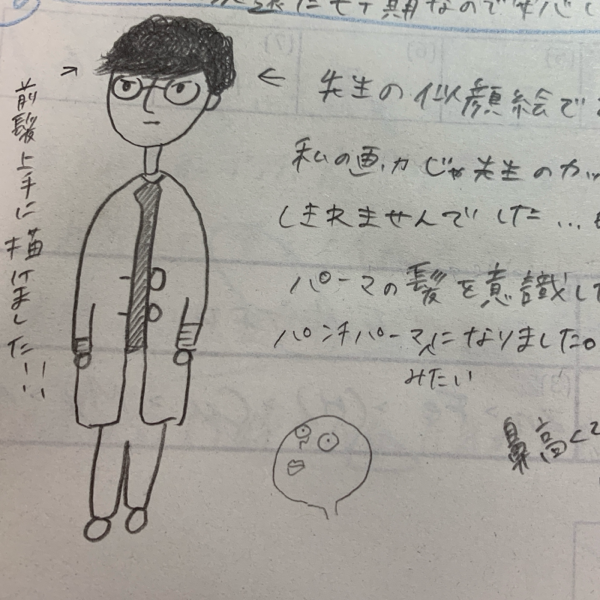 期なので
前髪上手に描けました!!
← 先生の似顔絵で
私の画力じゃ先生のカッ
しきれませんでした...
パーマの髪を意識し
パンチパーマみたいになりました。
鼻高く